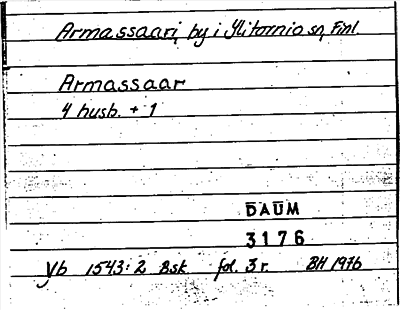 Armassaari, by i Ylitornio sn, Finl.
Armassaar
4 husb. + 1
DAUM
3176
Yb 1543:2 Bsk fol. 3 r. BH 1976